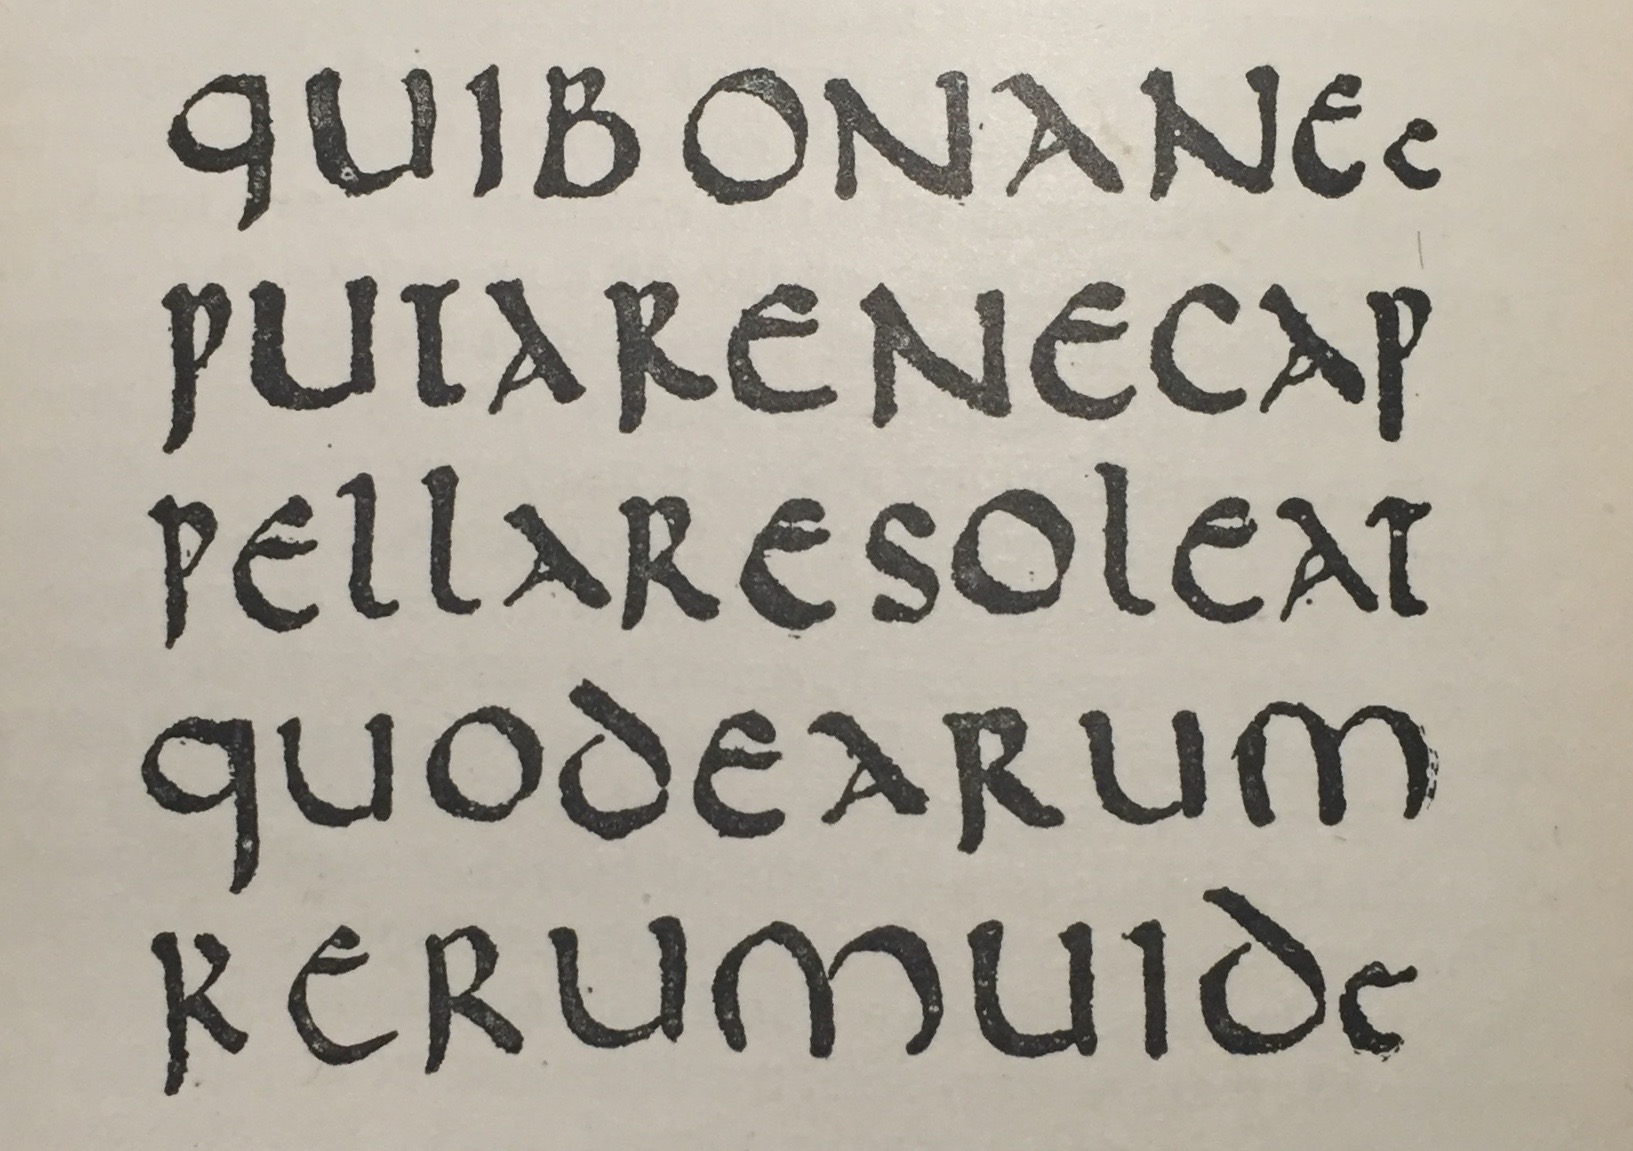 QUIBONANEC
PUTARENECAP
PELLARESOLEAT
QUODEARUM
RERUMUIDE